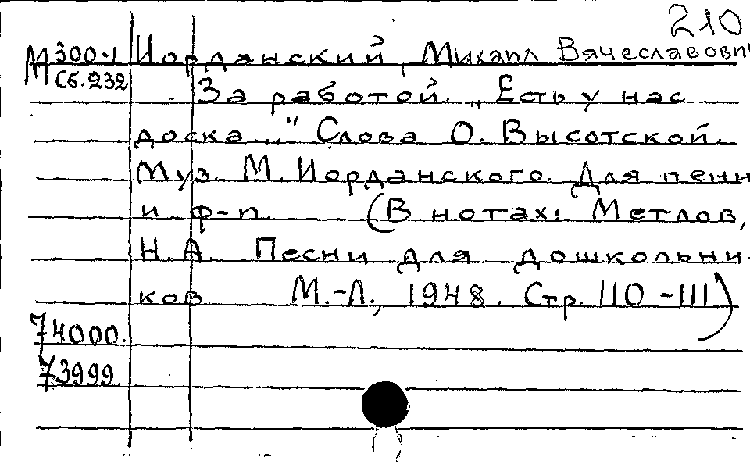 210
М 300-1 Иорданский, Михаил Вячеславович
Сб.232 За работой. „Есть у нас
доска..." Слова О. Высотской.
Муз. М. Иорданского. Для пени
и ф-п. (В нотах: Метлов,
Н.А. Песни для дошкольни-
ков М.-Л., 1948. Стр. 110-111)
74000.
73999